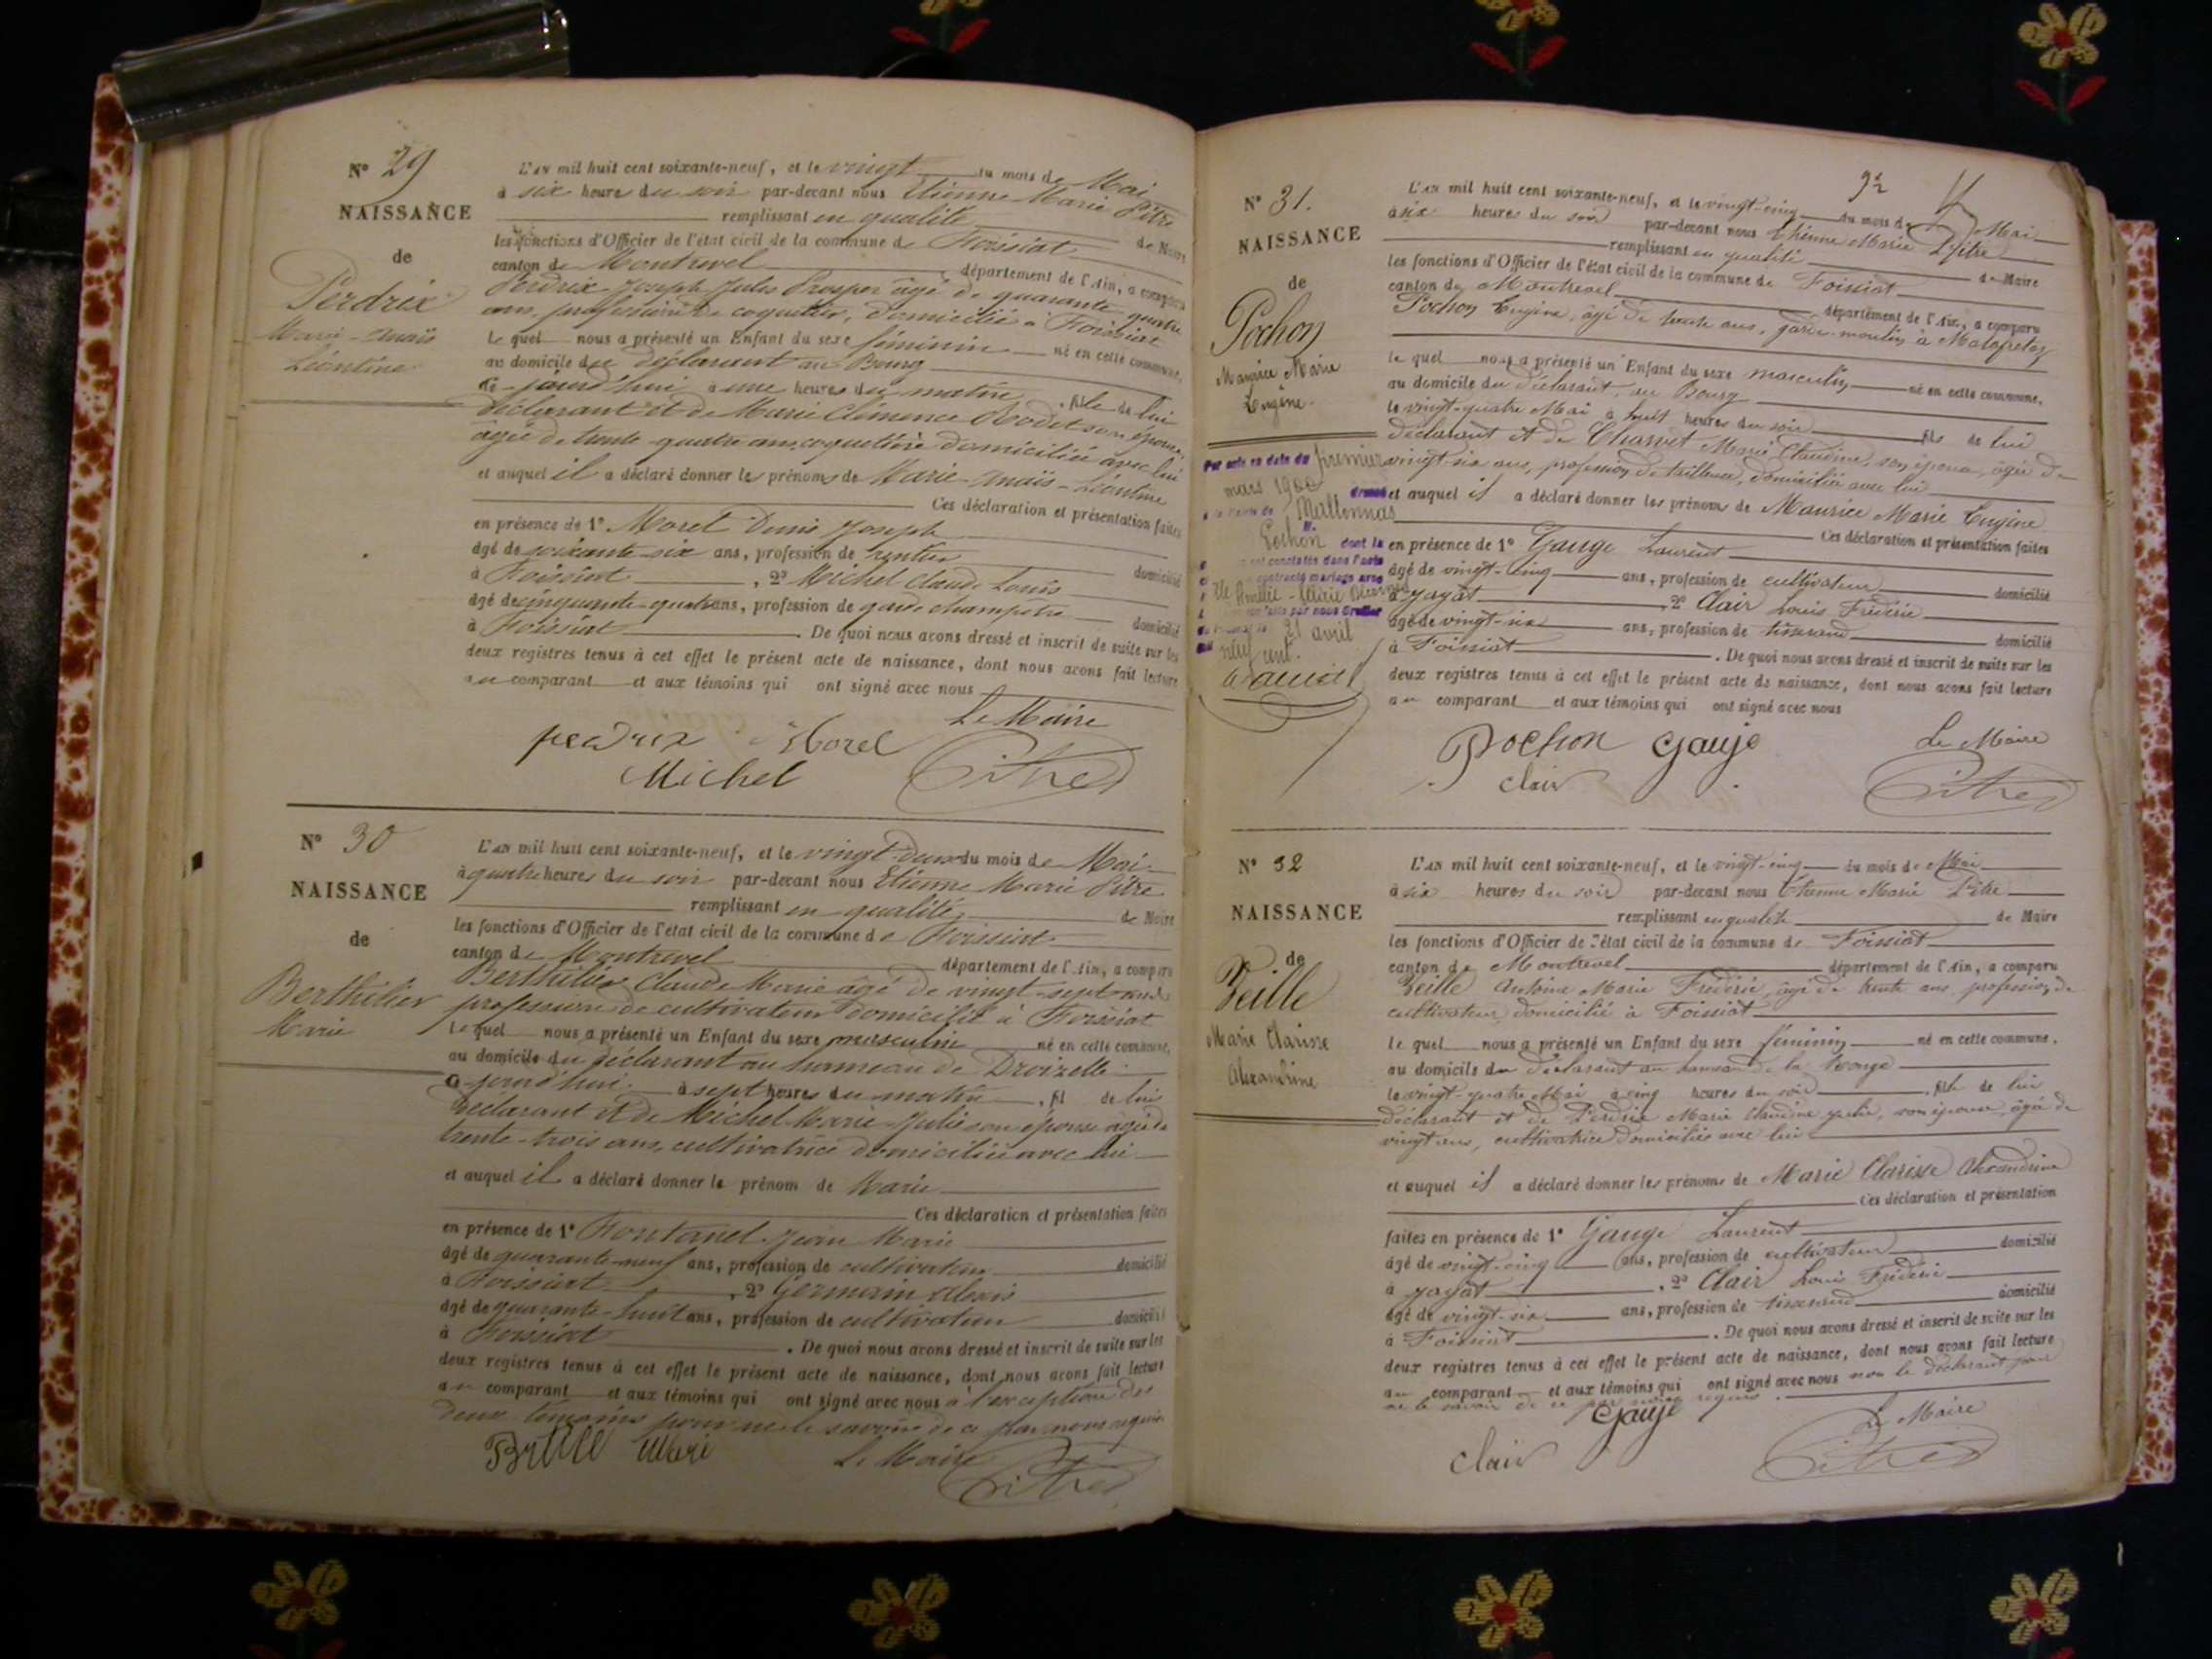 N° 29
NAISSANCE
de
Perdrix
Marie-Anaïs
Léontine
L'AN mil huit cent soixante-neuf, et le vingt du mois de Mai
à six heure du soir par-devant nous Etienne Marie Pitre
remplissant en qualité de Maire
les fonctions d'Officier de l'état civil de la commune de Foissiat
canton de Montrevel département de l'Ain, a comparu
Perdrix Joseph Jules Prosper âgé de quarante quatre
ans, profession de coquetier, domicilié à Foissiat
le quel nous a présenté un Enfant du sexe féminin né en cette commune,
au domicile du déclarant au Bourg
jourd'hui à une heures du matin, fille de lui
déclarant et de Marie Clémence Bodet son épouse,
âgée de trente-quatre ans, coquetière domiciliée avec lui
et auquel il a déclaré donner les prénoms de Marie-Anaïs-Léontine
Ces déclaration et présentation faites
en présence de 1° Morel Denis Joseph
âgé de soixante-six ans, profession de rentier domicilié
à Foissiat, 2° Michel Claude Louis
âgé de cinquante-quatre ans, profession de garde champêtre domicilié
à Foissiat. De quoi nous avons dressé et inscrit de suite sur les
deux registres tenus à cet effet le présent acte de naissance, dont nous avons fait lecture
au comparant et aux témoins qui ont signé avec nous
Le Maire
perdrix Morel
Michel Pitre
N° 30
NAISSANCE
de
Berthilier
Marie
L'AN mil huit cent soixante-neuf, et le vingt-deux du mois de Mai
à quatre heures du soir par-devant nous Etienne Marie Pitre
remplissant en qualité de Maire
les fonctions d'Officier de l'état civil de la commune de Foissiat
canton de Montrevel département de l'Ain, a comparu
Berthilier Claude Marie âgé de vingt-sept ans
profession de cultivateur domicilié à Foissiat
le quel nous a présenté un Enfant du sexe masculin né en cette commune,
au domicile du déclarant au hameau de Droizelle
jourd'hui à sept heures du matin, fil de lui
déclarant et de Michel Marie Julie son épouse âgée de
trente-trois ans, cultivatrice domiciliée avec lui
et auquel il a déclaré donner le prénom de Marie
Ces déclaration et présentation faites
en présence de 1° Fontanel Jean Marie
âgé de quarante-neuf ans, profession de cultivateur domicilié
à Foissiat, 2° Germain Alexis
âgé de quarante-huit ans, profession de cultivateur domicilié
à Foissiat. De quoi nous avons dressé et inscrit de suite sur les
deux registres tenus à cet effet le présent acte de naissance, dont nous avons fait lecture
au comparant et aux témoins qui ont signé avec nous à l'exception des
deux témoins pour ne le savoir de ce par nous requis
Le Maire
Pitre
92
N° 31.
NAISSANCE
de
Pochon
Maurice Marie
Eugène
Par acte en date du premier
mars 1900
Pochon dont la
21 avril
neuf cent.
L'AN mil huit cent soixante-neuf, et le vingt-cinq du mois de Mai
à six heures du soir par-devant nous Etienne Marie Pitre
remplissant en qualité de Maire
les fonctions d'Officier de l'état civil de la commune de Foissiat
canton de Montrevel département de l'Ain, a comparu
Pochon Eugène, âgé de trente ans, garde-moulin à Malafretaz
le quel nous a présenté un Enfant du sexe masculin né en cette commune,
au domicile du déclarant, au Bourg
le vingt-quatre Mai à huit heures du soir fils de lui
déclarant et de Charvet Marie Claudine, son épouse, âgée de
vingt-six ans, profession de tailleuse, domiciliée avec lui
et auquel il a déclaré donner les prénoms de Maurice Marie Eugène
Ces déclaration et présentation faites
en présence de 1° Gauge Laurent
âgé de vingt-cinq ans, profession de cultivateur domicilié
à Jayat, 2° Clair Louis Frédéric
âgé de vingt-six ans, profession de tisserand domicilié
à Foissiat. De quoi nous avons dressé et inscrit de suite sur les
deux registres tenus à cet effet le présent acte de naissance, dont nous avons fait lecture
au comparant et aux témoins qui ont signé avec nous
Pochon Gauge Le Maire
Clair Pitre
N° 32
NAISSANCE
de
Veille
Marie Clarisse
Alexandrine
L'AN mil huit cent soixante-neuf, et le vingt-cinq du mois de Mai
à six heures du soir par-devant nous Etienne Marie Pitre
remplissant en qualité de Maire
les fonctions d'Officier de l'état civil de la commune de Foissiat
canton de Montrevel département de l'Ain, a comparu
Veille Antoine Marie Frédéric, âgé de trente ans, profession de
cultivateur, domicilié à Foissiat
le quel nous a présenté un Enfant du sexe féminin né en cette commune,
au domicile du déclarant au hameau de la
le vingt-quatre Mai à cinq heures du soir, fille de lui
déclarant et de Marie Claudine Julie, son épouse, âgée de
vingt ans, cultivatrice domiciliée avec lui
et auquel il a déclaré donner les prénoms de Marie Clarisse Alexandrine
Ces déclaration et présentation
faites en présence de 1° Gauge Laurent
âgé de vingt-cinq ans, profession de cultivateur domicilié
à Jayat, 2° Clair Louis Frédéric
âgé de vingt-six ans, profession de tisserand domicilié
à Foissiat. De quoi nous avons dressé et inscrit de suite sur les
deux registres tenus à cet effet le présent acte de naissance, dont nous avons fait lecture
au comparant et aux témoins qui ont signé avec nous non le déclarant pour
ne le savoir de ce par nous requis.
Gauge Le Maire
Clair Pitre